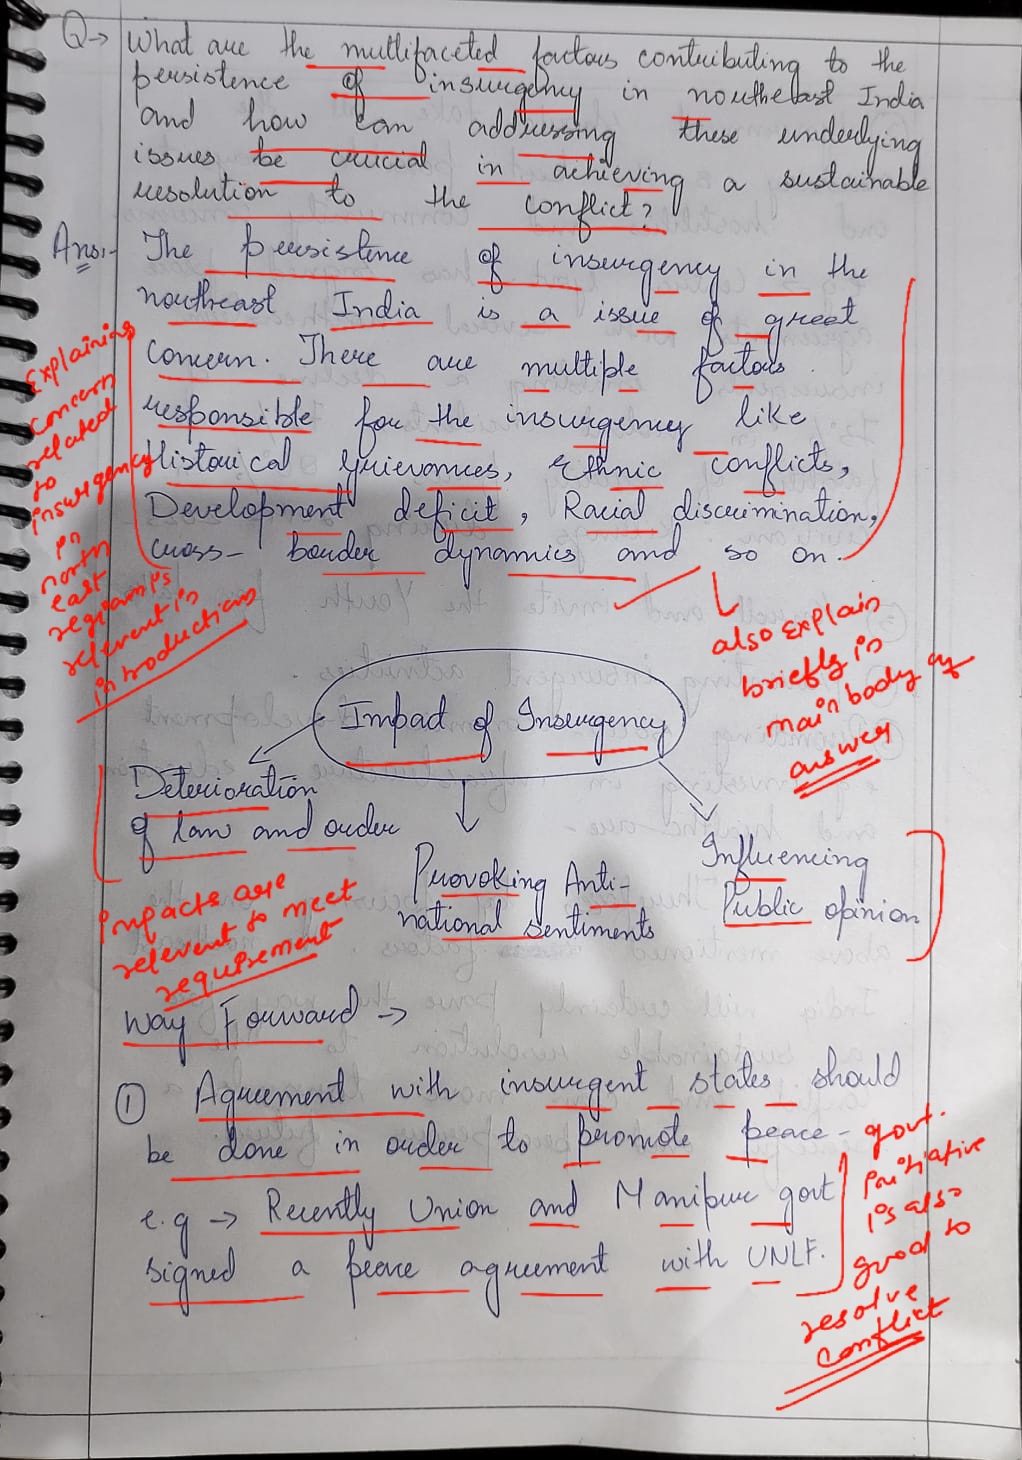 Q→ What are the multifaceted factors contributing to the
persistence of insurgency in northeast India
and how can addressing these underlying
issues be crucial in achieving a sustainable
resolution to the conflict?
Ans:- The persistence of insurgency in the
northeast India is a issue of great
concern. There are multiple factors
responsible for the insurgency like
Historical grievances, Ethnic conflicts,
Development deficit, Racial discrimination,
cross-border dynamics and so on.
Explaining
concern
related
to
insurgency
in
north
east
region is
relevent in
introductions
also explain
briefly in
main body of
answer
Impact of Insurgency
Deterioration
of law and order
Provoking Anti-
national sentiments
Influencing
Public opinion
Impacts are
relevent to meet
requirement
Way Forward →
① Agreement with insurgent states should
be done in order to promote peace-
e.g → Recently Union and Manipur govt
signed a peace agreement with UNLF.
govt.
initiative
is also
good to
resolve
conflict